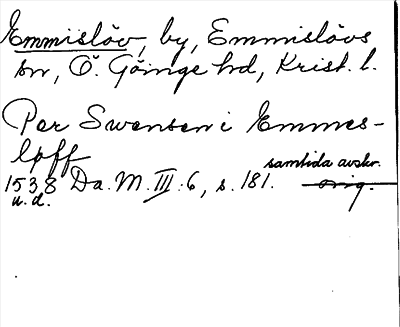 Emmislöv, by, Emmislövs
sn, Ö. Göinge hd, Krist. l.
Per Swensen i Emmes-
löff
samtida avskr.
1538 Da. M. III:6, s. 181. orig.
u. d.